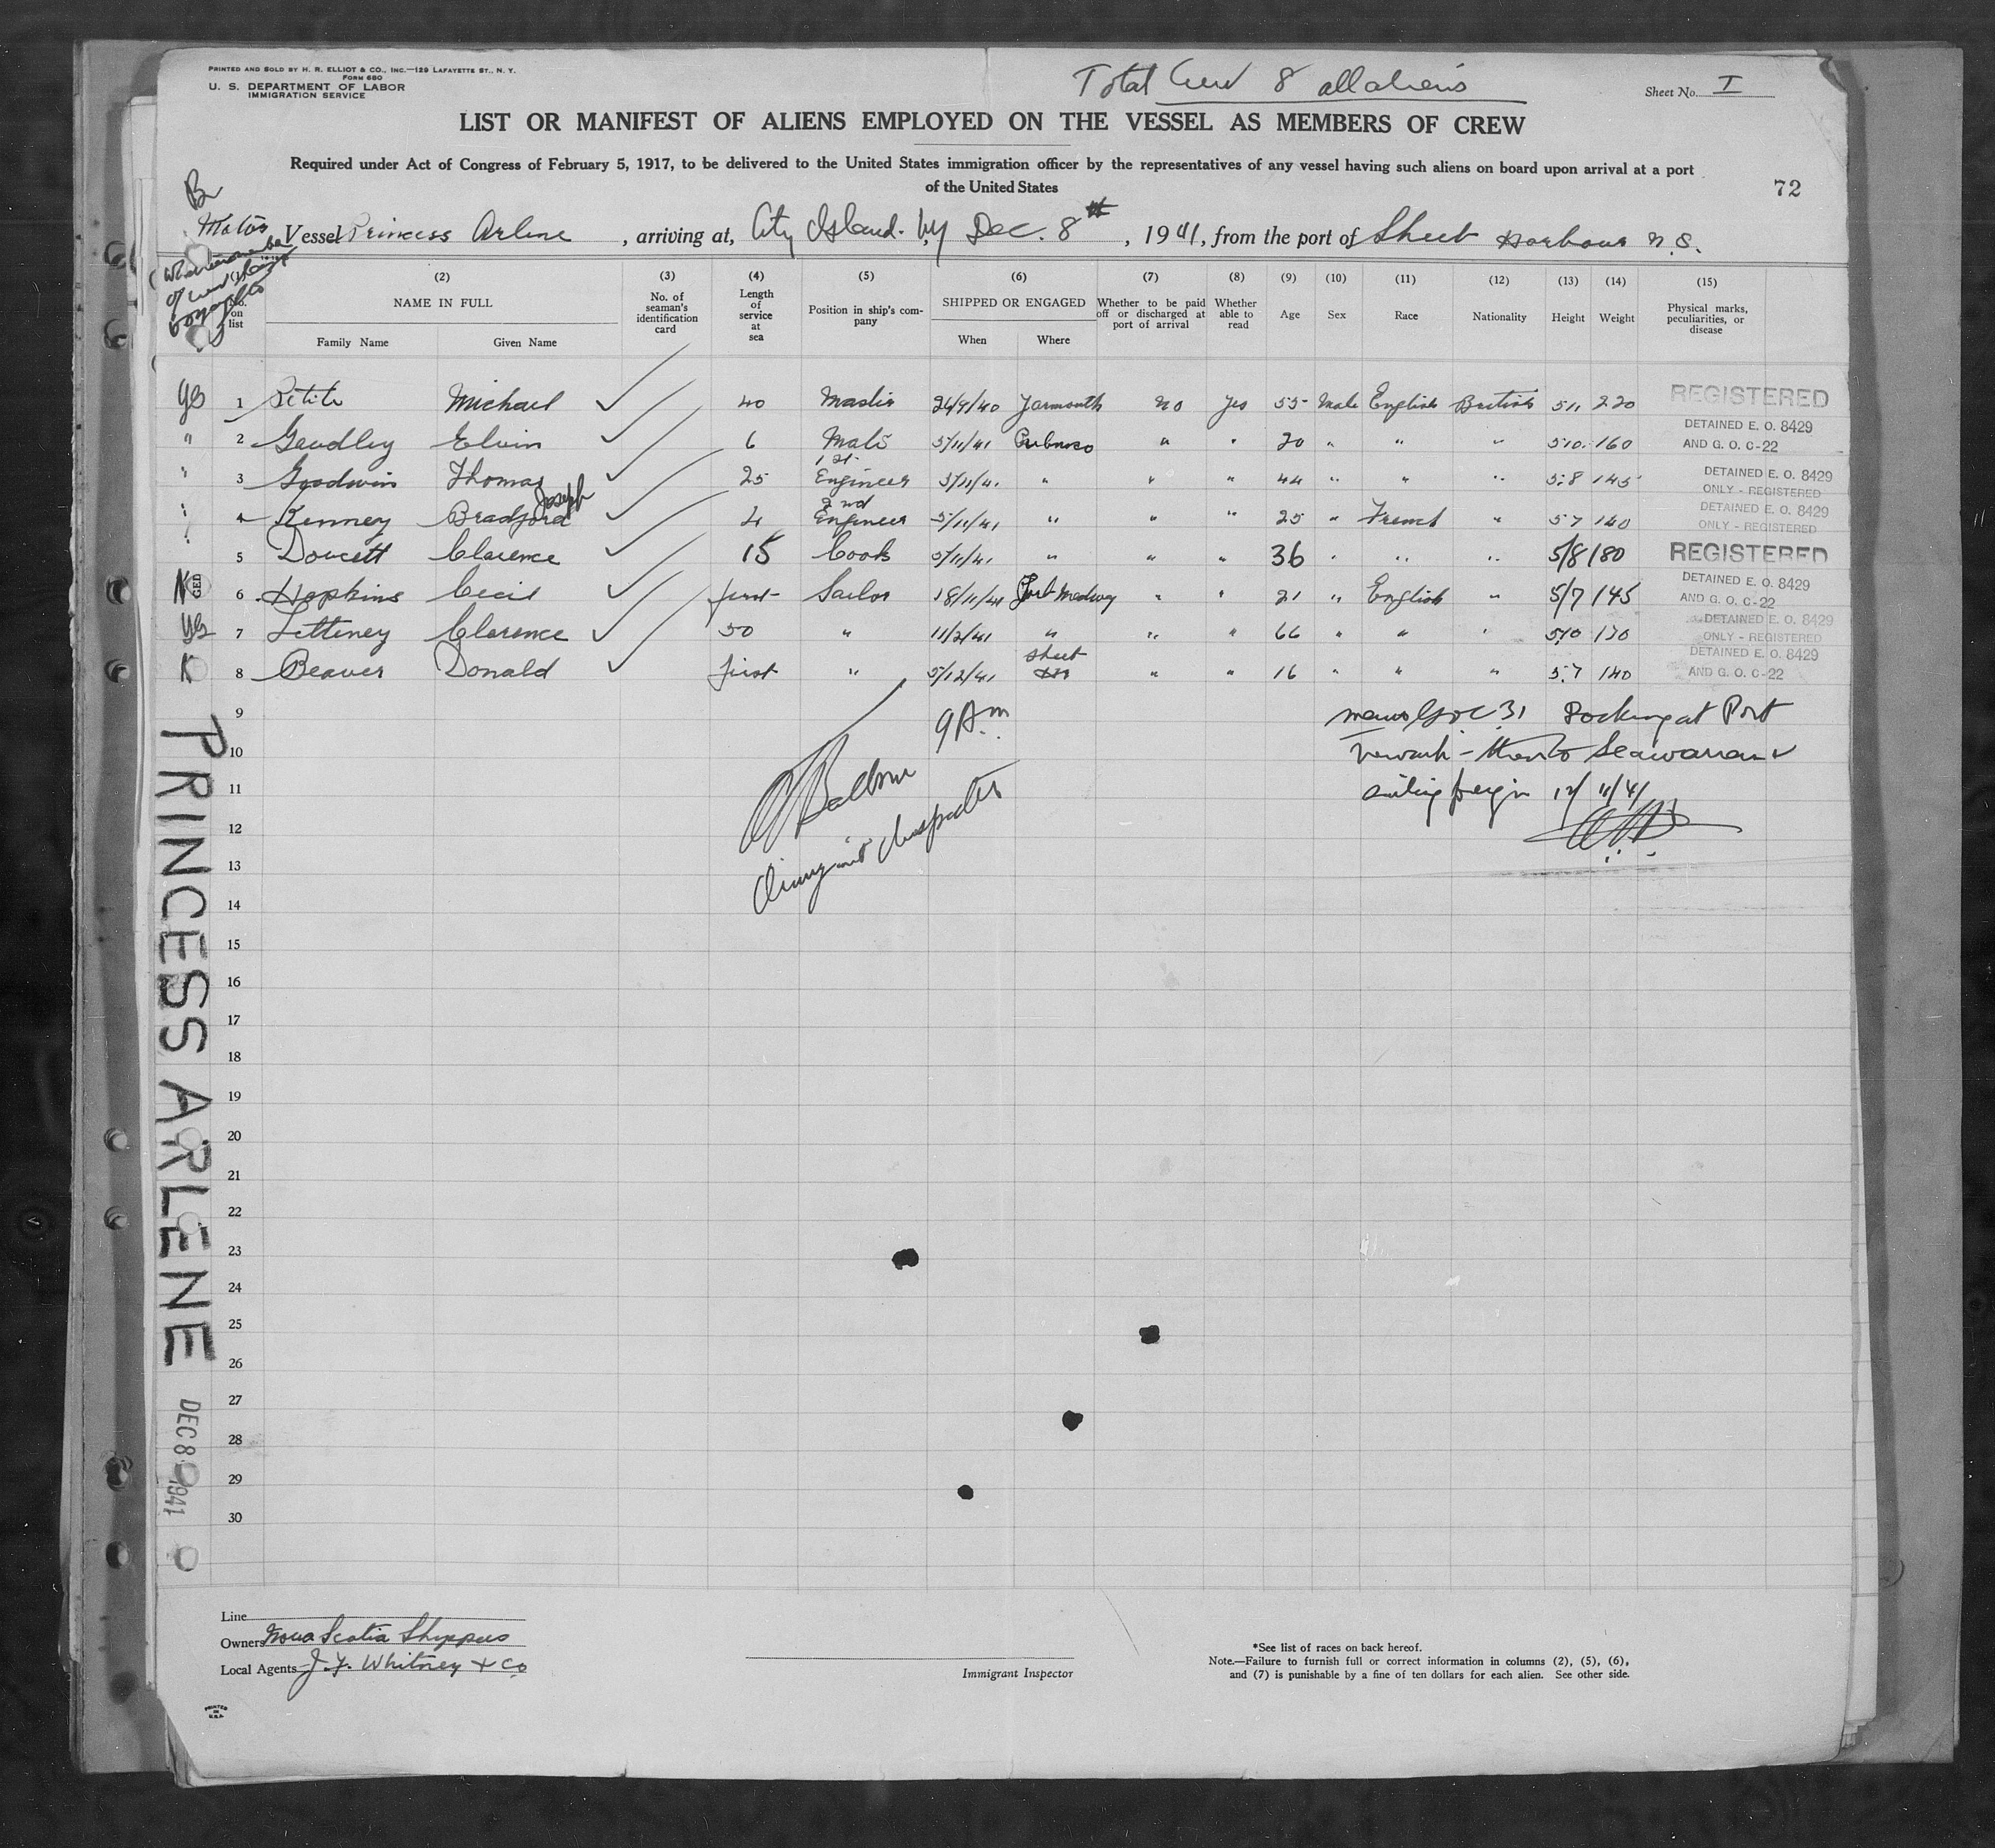 PRINTED AND SOLD BY H. R. ELLIOT & CO., INC.—129 LAFAYETTE ST., N. Y.
FORM 680
U. S. DEPARTMENT OF LABOR
IMMIGRATION SERVICE
Total Crew 8 all aliens
Sheet No. I
LIST OR MANIFEST OF ALIENS EMPLOYED ON THE VESSEL AS MEMBERS OF CREW
Required under Act of Congress of February 5, 1917, to be delivered to the United States immigration officer by the representatives of any vessel having such aliens on board upon arrival at a port
of the United States
72
Br
Motor Vessel Princess Arlene, arriving at, City Island. NY Dec. 8th, 1941, from the port of Sheet Harbour N.S.
(Whether member of crew
(2) (3) (4) (5) (6) (7) (8) (9) (10) (11) (12) (13) (14) (15)
No. on list
NAME IN FULL
Family Name Given Name
No. of seaman's identification card
Length of service at sea
Position in ship's company
SHIPPED OR ENGAGED
When Where
Whether to be paid off or discharged at port of arrival
Whether able to read
Age Sex Race Nationality Height Weight
Physical marks, peculiarities, or disease
Yes 1 Petite Michael 40 Master 24/9/40 Yarmouth No Yes 55 Male English British 5 11 220 REGISTERED
" 2 Elvin 6 Mate 5/11/41 Pubnico " " 20 " " " 5 10 160 DETAINED E. O. 8429 AND G. O. C-22
" 3 Goodwin Thomas 25 1st Engineer 5/11/41 " " " 44 " " " 5:8 145 DETAINED E. O. 8429 ONLY - REGISTERED
" 4 Kenney Bradford Joseph 4 2nd Engineer 5/11/41 " " " 25 " French " 5 7 140 DETAINED E. O. 8429 ONLY - REGISTERED
5 Doucett Clarence 15 Cook 5/11/41 " " " 36 " " " 5/8 180 REGISTERED
6 Hopkins Cecil first Sailor 18/11/41 Port Medway " " 21 " English " 5/7 145 DETAINED E. O. 8429 AND G. O. C-22
Yes 7 Clarence 50 " 11/2/41 " " " 66 " " " 5/10 170 DETAINED E. O. 8429 ONLY - REGISTERED
8 Beaver Donald first " 5/12/41 Sheet " " 16 " " " 5:7 140 DETAINED E. O. 8429 AND G. O. C-22
9
9 Am
31 Docking at Port
10
Newark - then to Seawarren
11
sailing foreign 12/11/41
12
Immigrant Inspector
13
14
15
16
17
18
19
20
21
22
23
24
25
26
27
28
29
30
PRINCESS ARLENE
DEC 8 1941
Line
Owners Nova Scotia Shippers
Local Agents J. F. Whitney & Co
Immigrant Inspector
*See list of races on back hereof.
Note.—Failure to furnish full or correct information in columns (2), (5), (6),
and (7) is punishable by a fine of ten dollars for each alien. See other side.
PRINTED
IN
U.S.A.